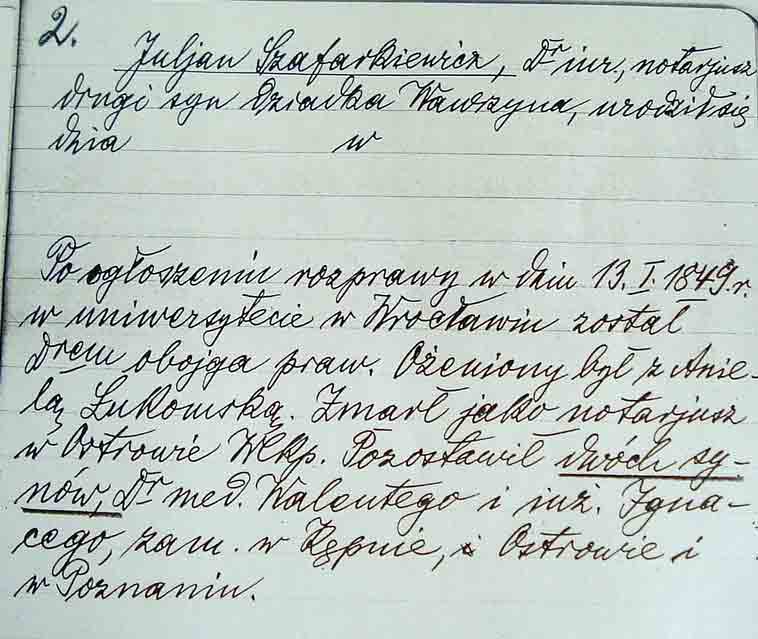 2.
Juljan Szafarkiewicz, Dr iur., notarjusz
drugi syn dziadka Wawrzyna, urodził się
dnia w
Po ogłoszeniu rozprawy w dniu 13. I. 1849. r.
w uniwersytecie w Wrocławiu został
Drem obojga praw. Ożeniony był z Anie-
lą Łukomską. Zmarł jako notarjusz
w Ostrowie Wlkp. Pozostawił dwóch sy-
nów, Dr med. Walentego i inż. Igna-
cego, zam. w Kępnie, i Ostrowie i
w Poznaniu.